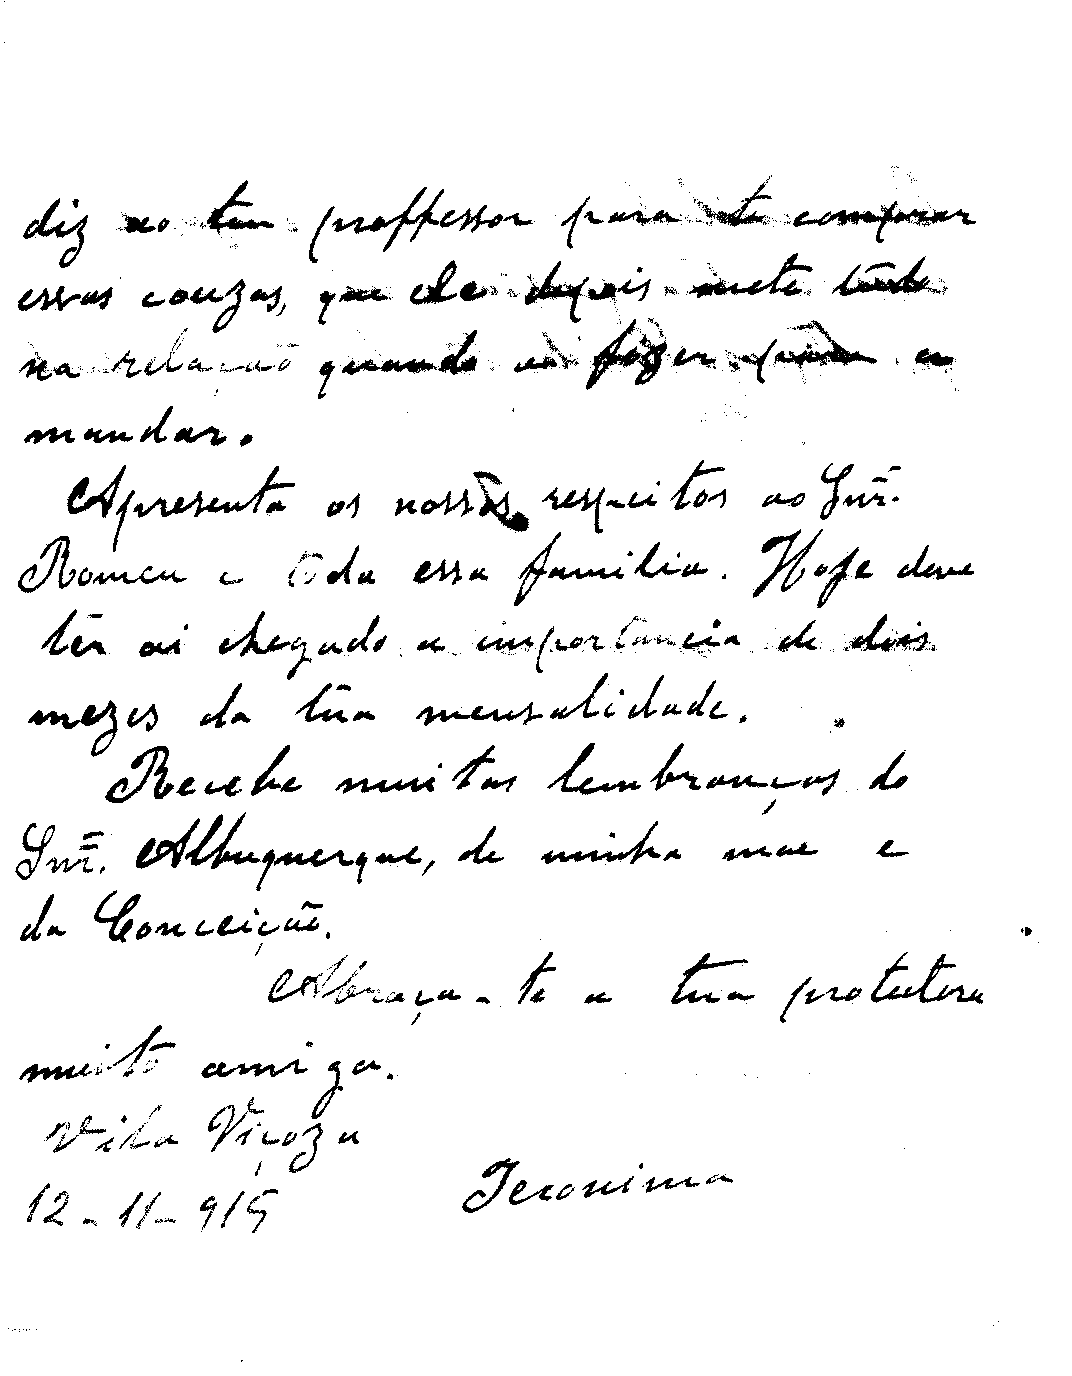 diz ao teu proffessor para te comprar
essas couzas, que ele depois mete tudo
na relação quando a fizer para a
mandar.
Apresenta os nossos respeitos ao Snr̄.
Romeu e toda essa familia. Hoje deve
têr ai chegado a importancia de dois
mezes da tua mensalidade.
Recebe muitas lembranças do
Snr̄. Albuquerque, de minha mãe e
da Conceição.
Abraça-te a tua protectora
muito amiga.
Vila Viçoza
12-11-915 Jeronima